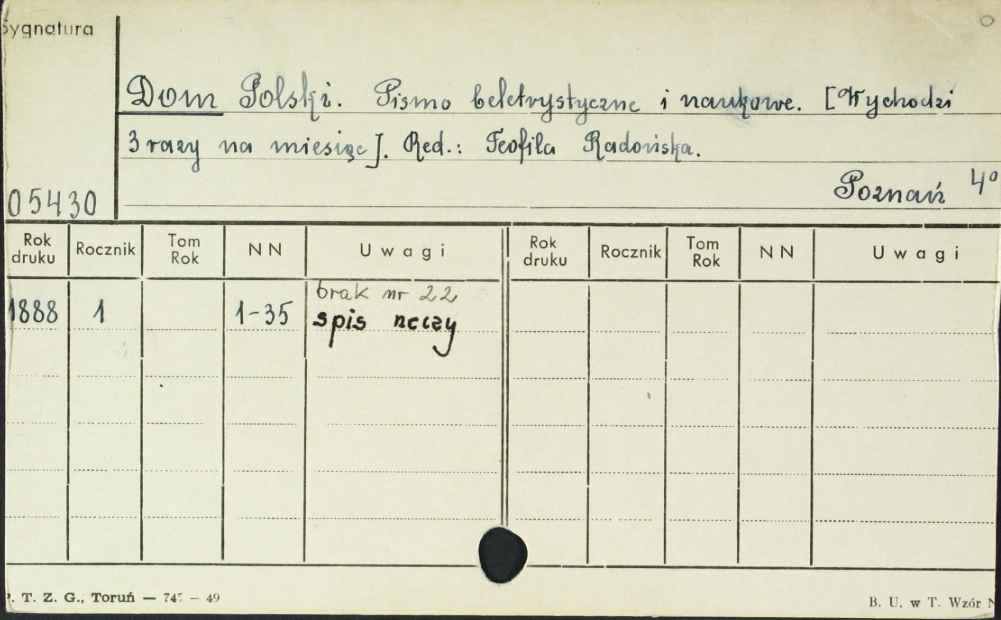 Sygnatura
Dom Polski. Pismo beletrystyczne i naukowe. [Wychodzi
3 razy na miesiąc]. Red.: Teofila Radońska.
Poznań 4°
05430
Rok druku Rocznik Tom Rok NN Uwagi Rok druku Rocznik Tom Rok NN Uwagi
1888 1 1-35 brak nr 22
spis rzeczy
. T. Z. G., Toruń — 745 — 49
B. U. w T. Wzór N